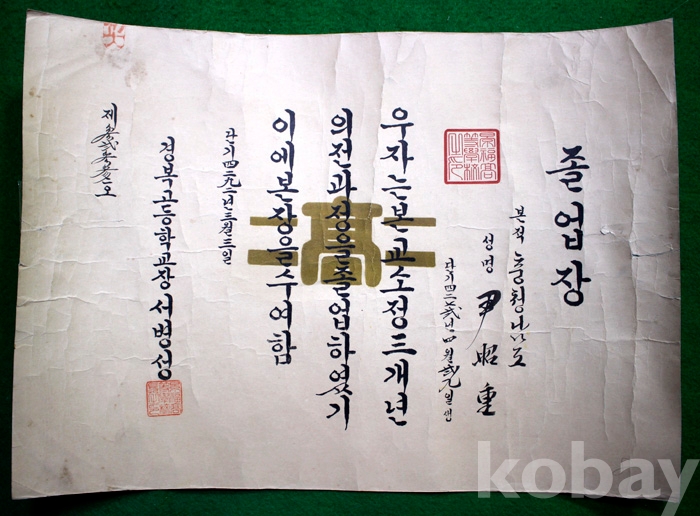 졸업장
본적 충청남도
성명 尹昭重
단기四二 년四월貳九일생
景福高等學校之印
우자는본교소정三개년
의전과정을졸업하였기
이에본장을수여함
高
단기四二九二년三월三일
경복고등학교장서병성
제 호
kobay